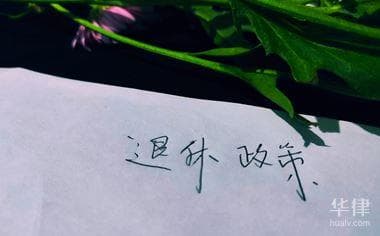 退休政策
华律
hualv.com